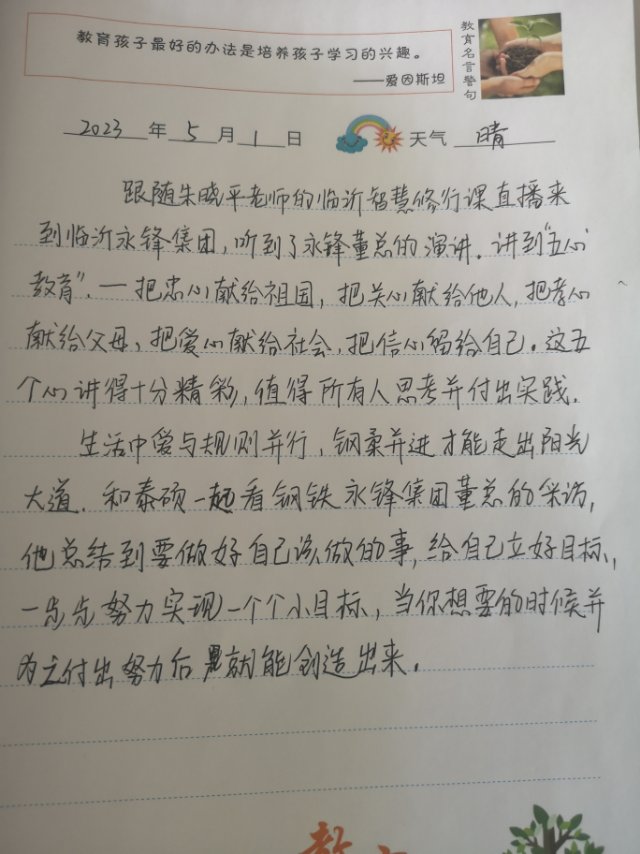 教育孩子最好的办法是培养孩子学习的兴趣。
——爱因斯坦
教育名言警句
2023年5月1日 天气 晴
跟随朱晓平老师的临沂智慧修行课直播来
到临沂永锋集团，听到了永锋董总的演讲．讲到"五心
教育"．一把忠心献给祖国，把关心献给他人，把孝心
献给父母，把爱心献给社会，把信心留给自己。这五
个心讲得十分精彩，值得所有人思考并付出实践．
生活中爱与规则并行，钢柔并进才能走出阳光
大道．和泰硕一起看钢铁永锋集团董总的采访，
他总结到要做好自己该做的事，给自己立好目标，
一步步努力实现一个个小目标，当你想要的时候并
为之付出努力后就能创造出来．